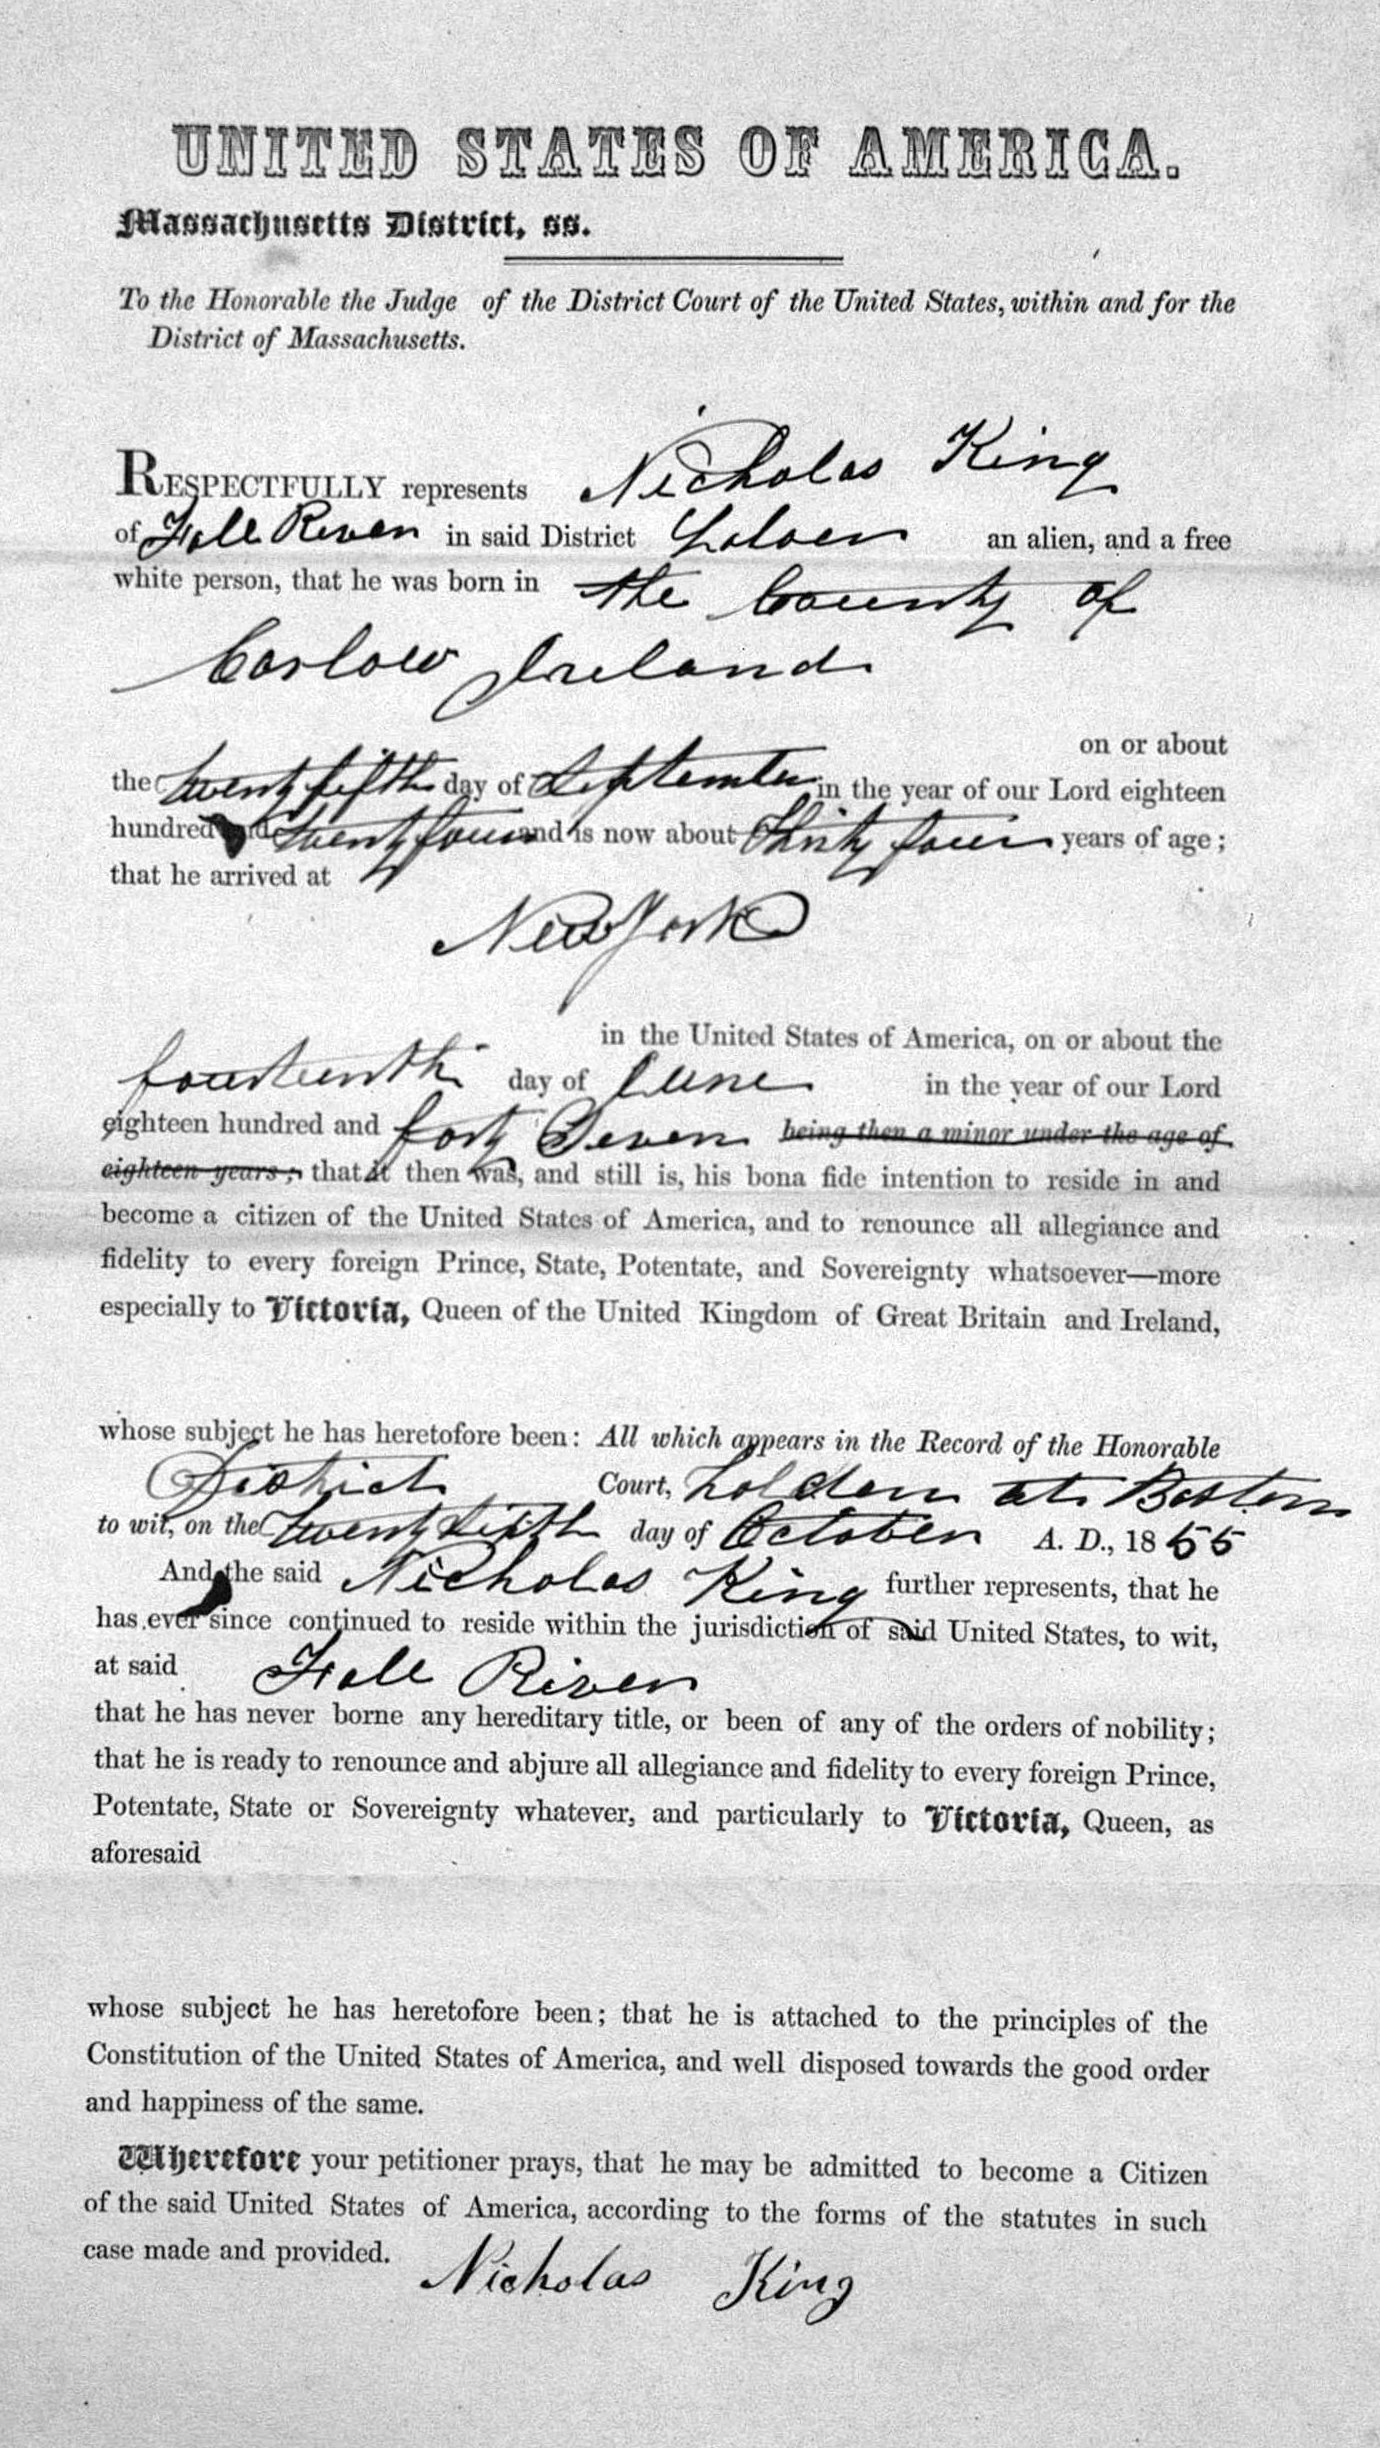 UNITED STATES OF AMERICA.
Massachusetts District, ss.
To the Honorable the Judge of the District Court of the United States, within and for the
District of Massachusetts.
RESPECTFULLY represents Nicholas King
of Fall River in said District Laborer an alien, and a free
white person, that he was born in the County of
Carlow Ireland
on or about
the twenty fifth day of September in the year of our Lord eighteen
hundred and twenty four and is now about Thirty four years of age;
that he arrived at
New York
in the United States of America, on or about the
fourteenth day of June in the year of our Lord
eighteen hundred and forty Seven being then a minor under the age of
eighteen years; that it then was, and still is, his bona fide intention to reside in and
become a citizen of the United States of America, and to renounce all allegiance and
fidelity to every foreign Prince, State, Potentate, and Sovereignty whatsoever—more
especially to Victoria, Queen of the United Kingdom of Great Britain and Ireland,
whose subject he has heretofore been: All which appears in the Record of the Honorable
District Court, holden at Boston
to wit, on the twenty day of October A. D., 1855
And the said Nicholas King further represents, that he
has ever since continued to reside within the jurisdiction of said United States, to wit,
at said Fall River
that he has never borne any hereditary title, or been of any of the orders of nobility;
that he is ready to renounce and abjure all allegiance and fidelity to every foreign Prince,
Potentate, State or Sovereignty whatever, and particularly to Victoria, Queen, as
aforesaid
whose subject he has heretofore been; that he is attached to the principles of the
Constitution of the United States of America, and well disposed towards the good order
and happiness of the same.
Wherefore your petitioner prays, that he may be admitted to become a Citizen
of the said United States of America, according to the forms of the statutes in such
case made and provided.
Nicholas King